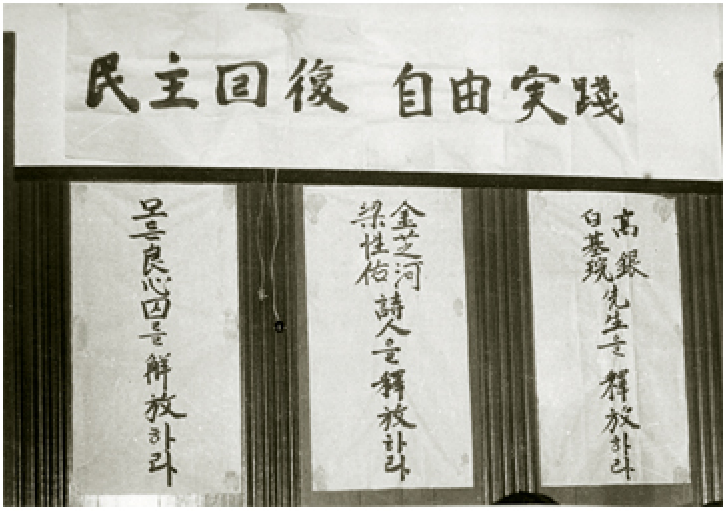 民主回復 自由実踐
高銀
白基琓
先生을 釋放하라
金芝河
梁性佑
詩人을 釋放하라
모든良心囚를 解放하라